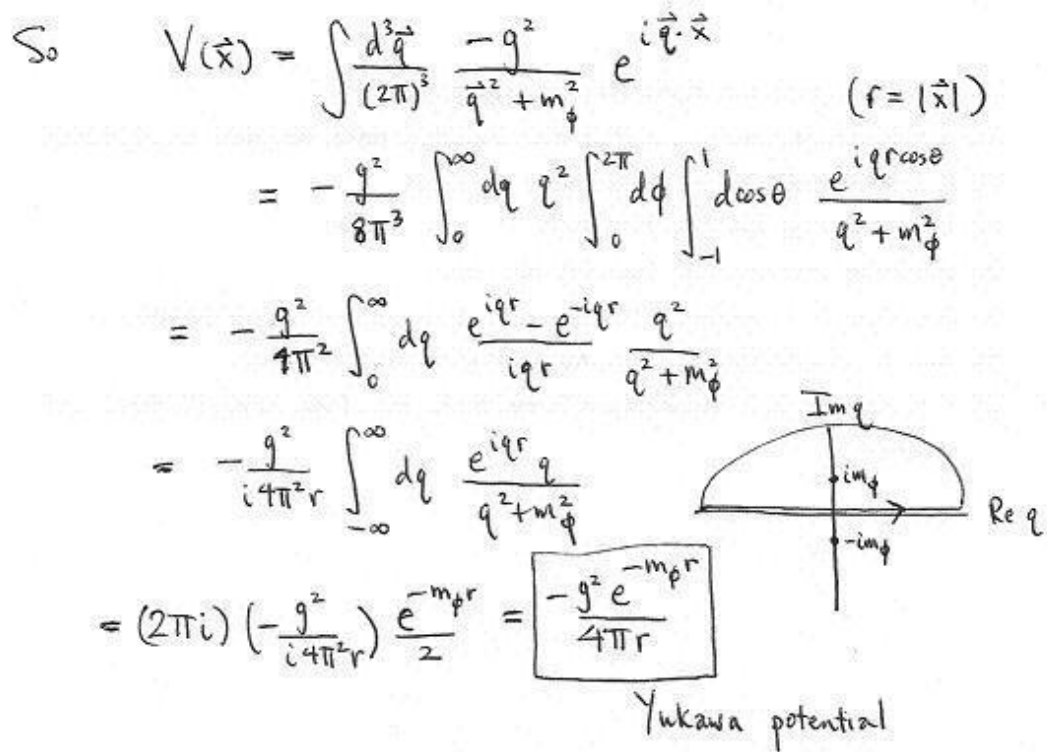 So V(x⃗) = ∫ d³q⃗/(2π)³ -g²/(q⃗² + m_ϕ²) e^{i q⃗·x⃗}
(r = |x⃗|)
= - g²/8π³ ∫₀^∞ dq q² ∫₀^{2π} dϕ ∫₋₁^1 dcosθ e^{iqrcosθ}/(q² + m_ϕ²)
= - g²/4π² ∫₀^∞ dq (e^{iqr} - e^{-iqr})/iqr q²/(q² + m_ϕ²)
= - g²/(i4π²r) ∫_{-∞}^∞ dq e^{iqr} q/(q² + m_ϕ²)
Im q
im_ϕ
Re q
-im_ϕ
= (2πi) (- g²/(i4π²r)) e^{-m_ϕ r}/2 = -g² e^{-m_ϕ r}/4πr
Yukawa potential